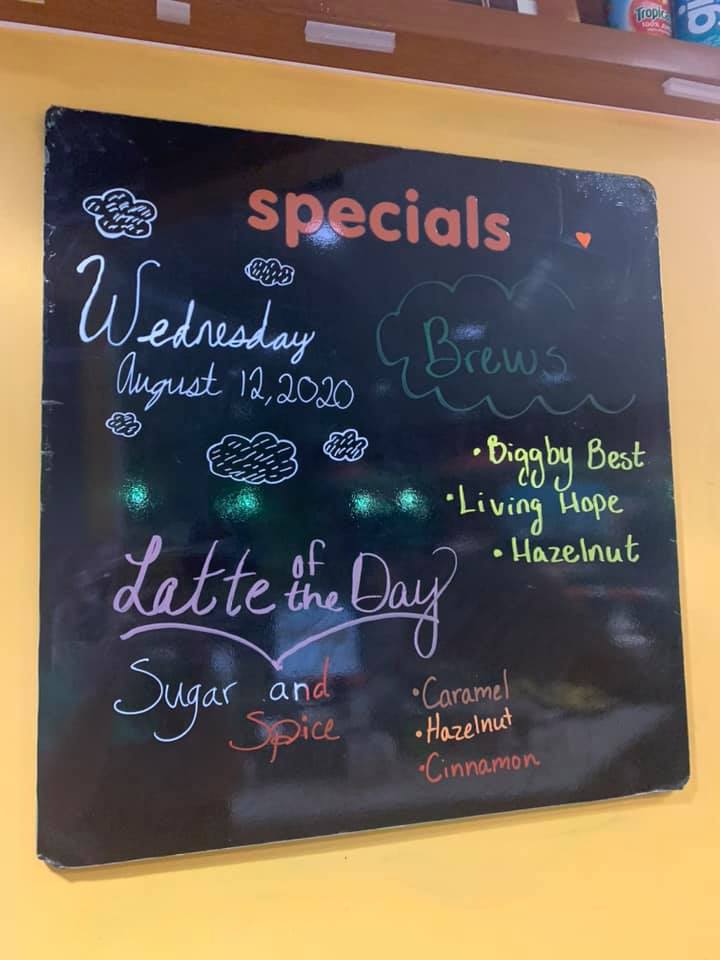 Tropic
specials
Wednesday
August 12, 2020
Brews
• Biggby Best
• Living Hope
• Hazelnut
Latte of the Day
Sugar and
Spice
• Caramel
• Hazelnut
• Cinnamon